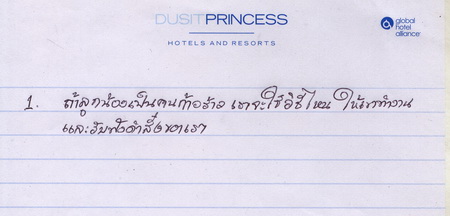 DUSIT PRINCESS
HOTELS AND RESORTS
global
hotel
alliance
1. ถ้าลูกน้องเป็นคนก้าวร้าว เราจะใช้วิธีไหน ให้เขาทำงาน
และรับฟังคำสั่งของเรา